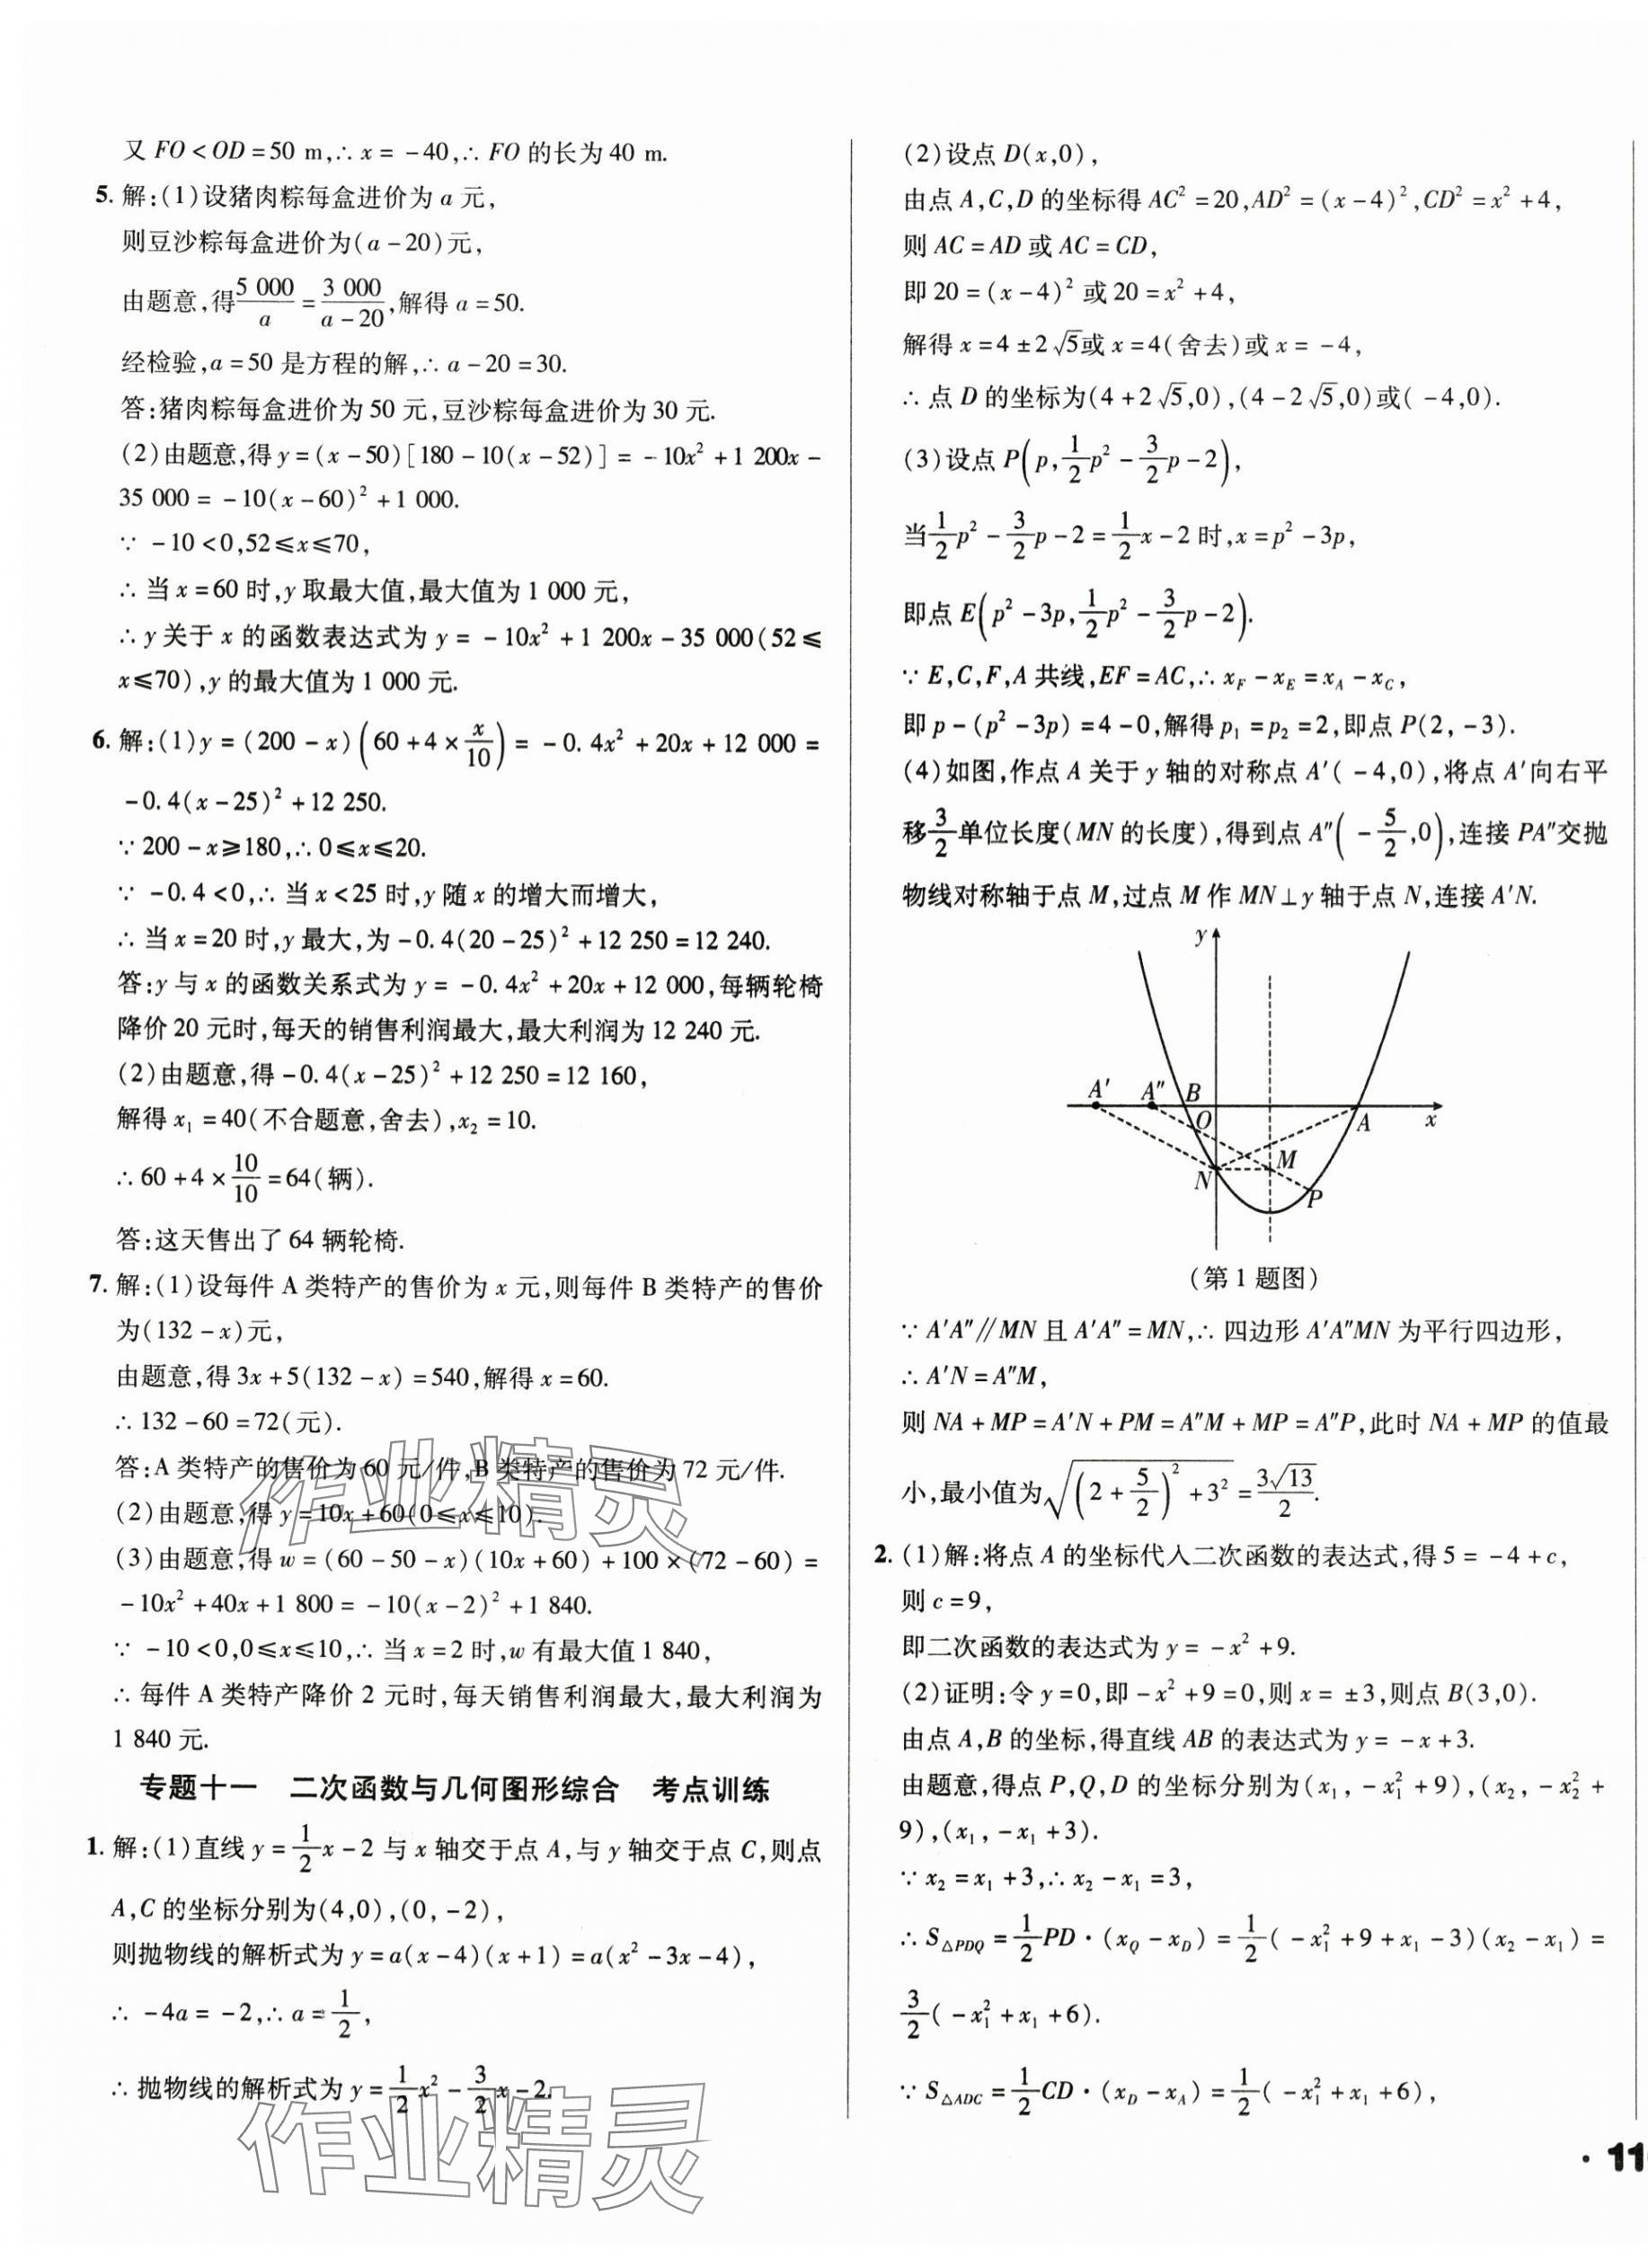 又 FO < OD = 50 m,∴ x = -40,∴ FO 的长为 40 m.
5. 解:(1)设猪肉粽每盒进价为 a 元,
则豆沙粽每盒进价为(a-20)元,
由题意,得 5 000/a = 3 000/(a-20),解得 a=50.
经检验,a=50 是方程的解,∴ a-20=30.
答:猪肉粽每盒进价为 50 元,豆沙粽每盒进价为 30 元.
(2)由题意,得 y=(x-50)[180-10(x-52)]=-10x²+1 200x-
35 000=-10(x-60)²+1 000.
∵ -10<0,52≤x≤70,
∴ 当 x=60 时,y 取最大值,最大值为 1 000 元,
∴ y 关于 x 的函数表达式为 y=-10x²+1 200x-35 000(52≤
x≤70),y 的最大值为 1 000 元.
6. 解:(1)y=(200-x)(60+4×x/10)=-0.4x²+20x+12 000=
-0.4(x-25)²+12 250.
∵ 200-x≥180,∴ 0≤x≤20.
∵ -0.4<0,∴ 当 x<25 时,y 随 x 的增大而增大,
∴ 当 x=20 时,y 最大,为-0.4(20-25)²+12 250=12 240.
答:y 与 x 的函数关系式为 y=-0.4x²+20x+12 000,每辆轮椅
降价 20 元时,每天的销售利润最大,最大利润为 12 240 元.
(2)由题意,得-0.4(x-25)²+12 250=12 160,
解得 x₁=40(不合题意,舍去),x₂=10.
∴ 60+4×10/10=64(辆).
答:这天售出了 64 辆轮椅.
7. 解:(1)设每件 A 类特产的售价为 x 元,则每件 B 类特产的售价
为(132-x)元,
由题意,得 3x+5(132-x)=540,解得 x=60.
∴ 132-60=72(元).
答:A 类特产的售价为 60 元/件,B 类特产的售价为 72 元/件.
(2)由题意,得 y=10x+60(0≤x≤10).
(3)由题意,得 w=(60-50-x)(10x+60)+100×(72-60)=
-10x²+40x+1 800=-10(x-2)²+1 840.
∵ -10<0,0≤x≤10,∴ 当 x=2 时,w 有最大值 1 840,
∴ 每件 A 类特产降价 2 元时,每天销售利润最大,最大利润为
1 840 元.
专题十一 二次函数与几何图形综合 考点训练
1. 解:(1)直线 y=1/2x-2 与 x 轴交于点 A,与 y 轴交于点 C,则点
A,C 的坐标分别为(4,0),(0,-2),
则抛物线的解析式为 y=a(x-4)(x+1)=a(x²-3x-4),
∴ -4a=-2,∴ a=1/2,
∴ 抛物线的解析式为 y=1/2x²-3/2x-2.
(2)设点 D(x,0),
由点 A,C,D 的坐标得 AC²=20,AD²=(x-4)²,CD²=x²+4,
则 AC=AD 或 AC=CD,
即 20=(x-4)² 或 20=x²+4,
解得 x=4±2√5或 x=4(舍去)或 x=-4,
∴ 点 D 的坐标为(4+2√5,0),(4-2√5,0)或(-4,0).
(3)设点 P(p,1/2p²-3/2p-2),
当1/2p²-3/2p-2=1/2x-2 时,x=p²-3p,
即点 E(p²-3p,1/2p²-3/2p-2).
∵ E,C,F,A 共线,EF=AC,∴ x_F-x_E=x_A-x_C,
即 p-(p²-3p)=4-0,解得 p₁=p₂=2,即点 P(2,-3).
(4)如图,作点 A 关于 y 轴的对称点 A′(-4,0),将点 A′向右平
移3/2单位长度(MN 的长度),得到点 A″(-5/2,0),连接 PA″交抛
物线对称轴于点 M,过点 M 作 MN⊥y 轴于点 N,连接 A′N.
y
A′ A″ B
O A x
N M
P
(第 1 题图)
∵ A′A″∥MN 且 A′A″=MN,∴ 四边形 A′A″MN 为平行四边形,
∴ A′N=A″M,
则 NA+MP=A′N+PM=A″M+MP=A″P,此时 NA+MP 的值最
小,最小值为√((2+5/2)²+3²)=3√13/2.
2. (1)解:将点 A 的坐标代入二次函数的表达式,得 5=-4+c,
则 c=9,
即二次函数的表达式为 y=-x²+9.
(2)证明:令 y=0,即-x²+9=0,则 x=±3,则点 B(3,0).
由点 A,B 的坐标,得直线 AB 的表达式为 y=-x+3.
由题意,得点 P,Q,D 的坐标分别为(x₁,-x₁²+9),(x₂,-x₂²+
9),(x₁,-x₁+3).
∵ x₂=x₁+3,∴ x₂-x₁=3,
∴ S△PDQ=1/2PD·(x_Q-x_D)=1/2(-x₁²+9+x₁-3)(x₂-x₁)=
3/2(-x₁²+x₁+6).
∵ S△ADC=1/2CD·(x_D-x_A)=1/2(-x₁²+x₁+6),
· 11
作业精灵
作业精灵